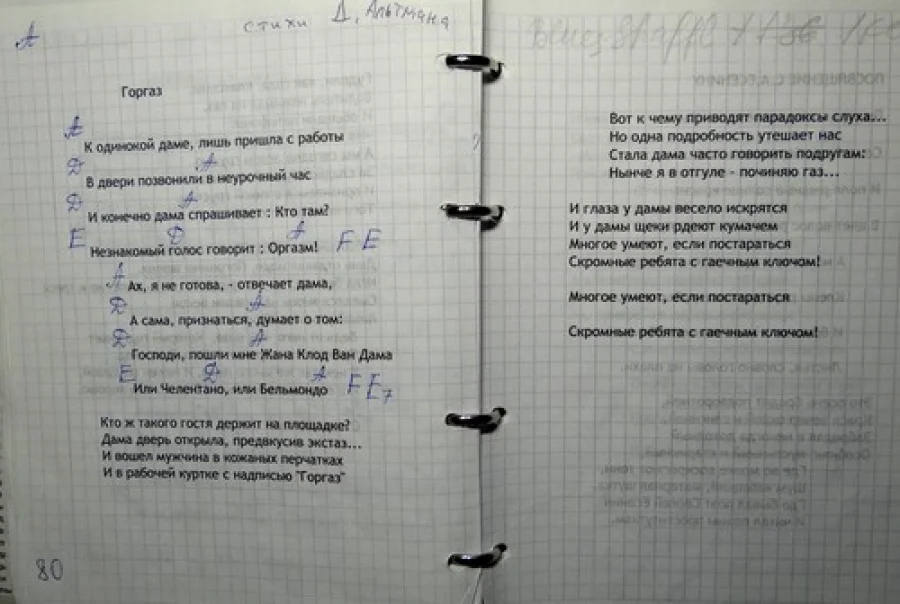 А
стихи Д. Альтмана
Горгаз
A
К одинокой даме, лишь пришла с работы
D A
В двери позвонили в неурочный час
D A
И конечно дама спрашивает : Кто там?
E D A F E
Незнакомый голос говорит : Оргазм!
A
Ах, я не готова, - отвечает дама,
D A
А сама, признаться, думает о том:
D A
Господи, пошли мне Жана Клод Ван Дама
E D A F E7
Или Челентано, или Бельмондо
Кто ж такого гостя держит на площадке?
Дама дверь открыла, предвкусив экстаз...
И вошел мужчина в кожаных перчатках
И в рабочей куртке с надписью "Горгаз"
80
Вот к чему приводят парадоксы слуха...
Но одна подробность утешает нас
Стала дама часто говорить подругам:
Нынче я в отгуле - починяю газ...
И глаза у дамы весело искрятся
И у дамы щеки рдеют кумачем
Многое умеют, если постараться
Скромные ребята с гаечным ключом!
Многое умеют, если постараться
Скромные ребята с гаечным ключом!